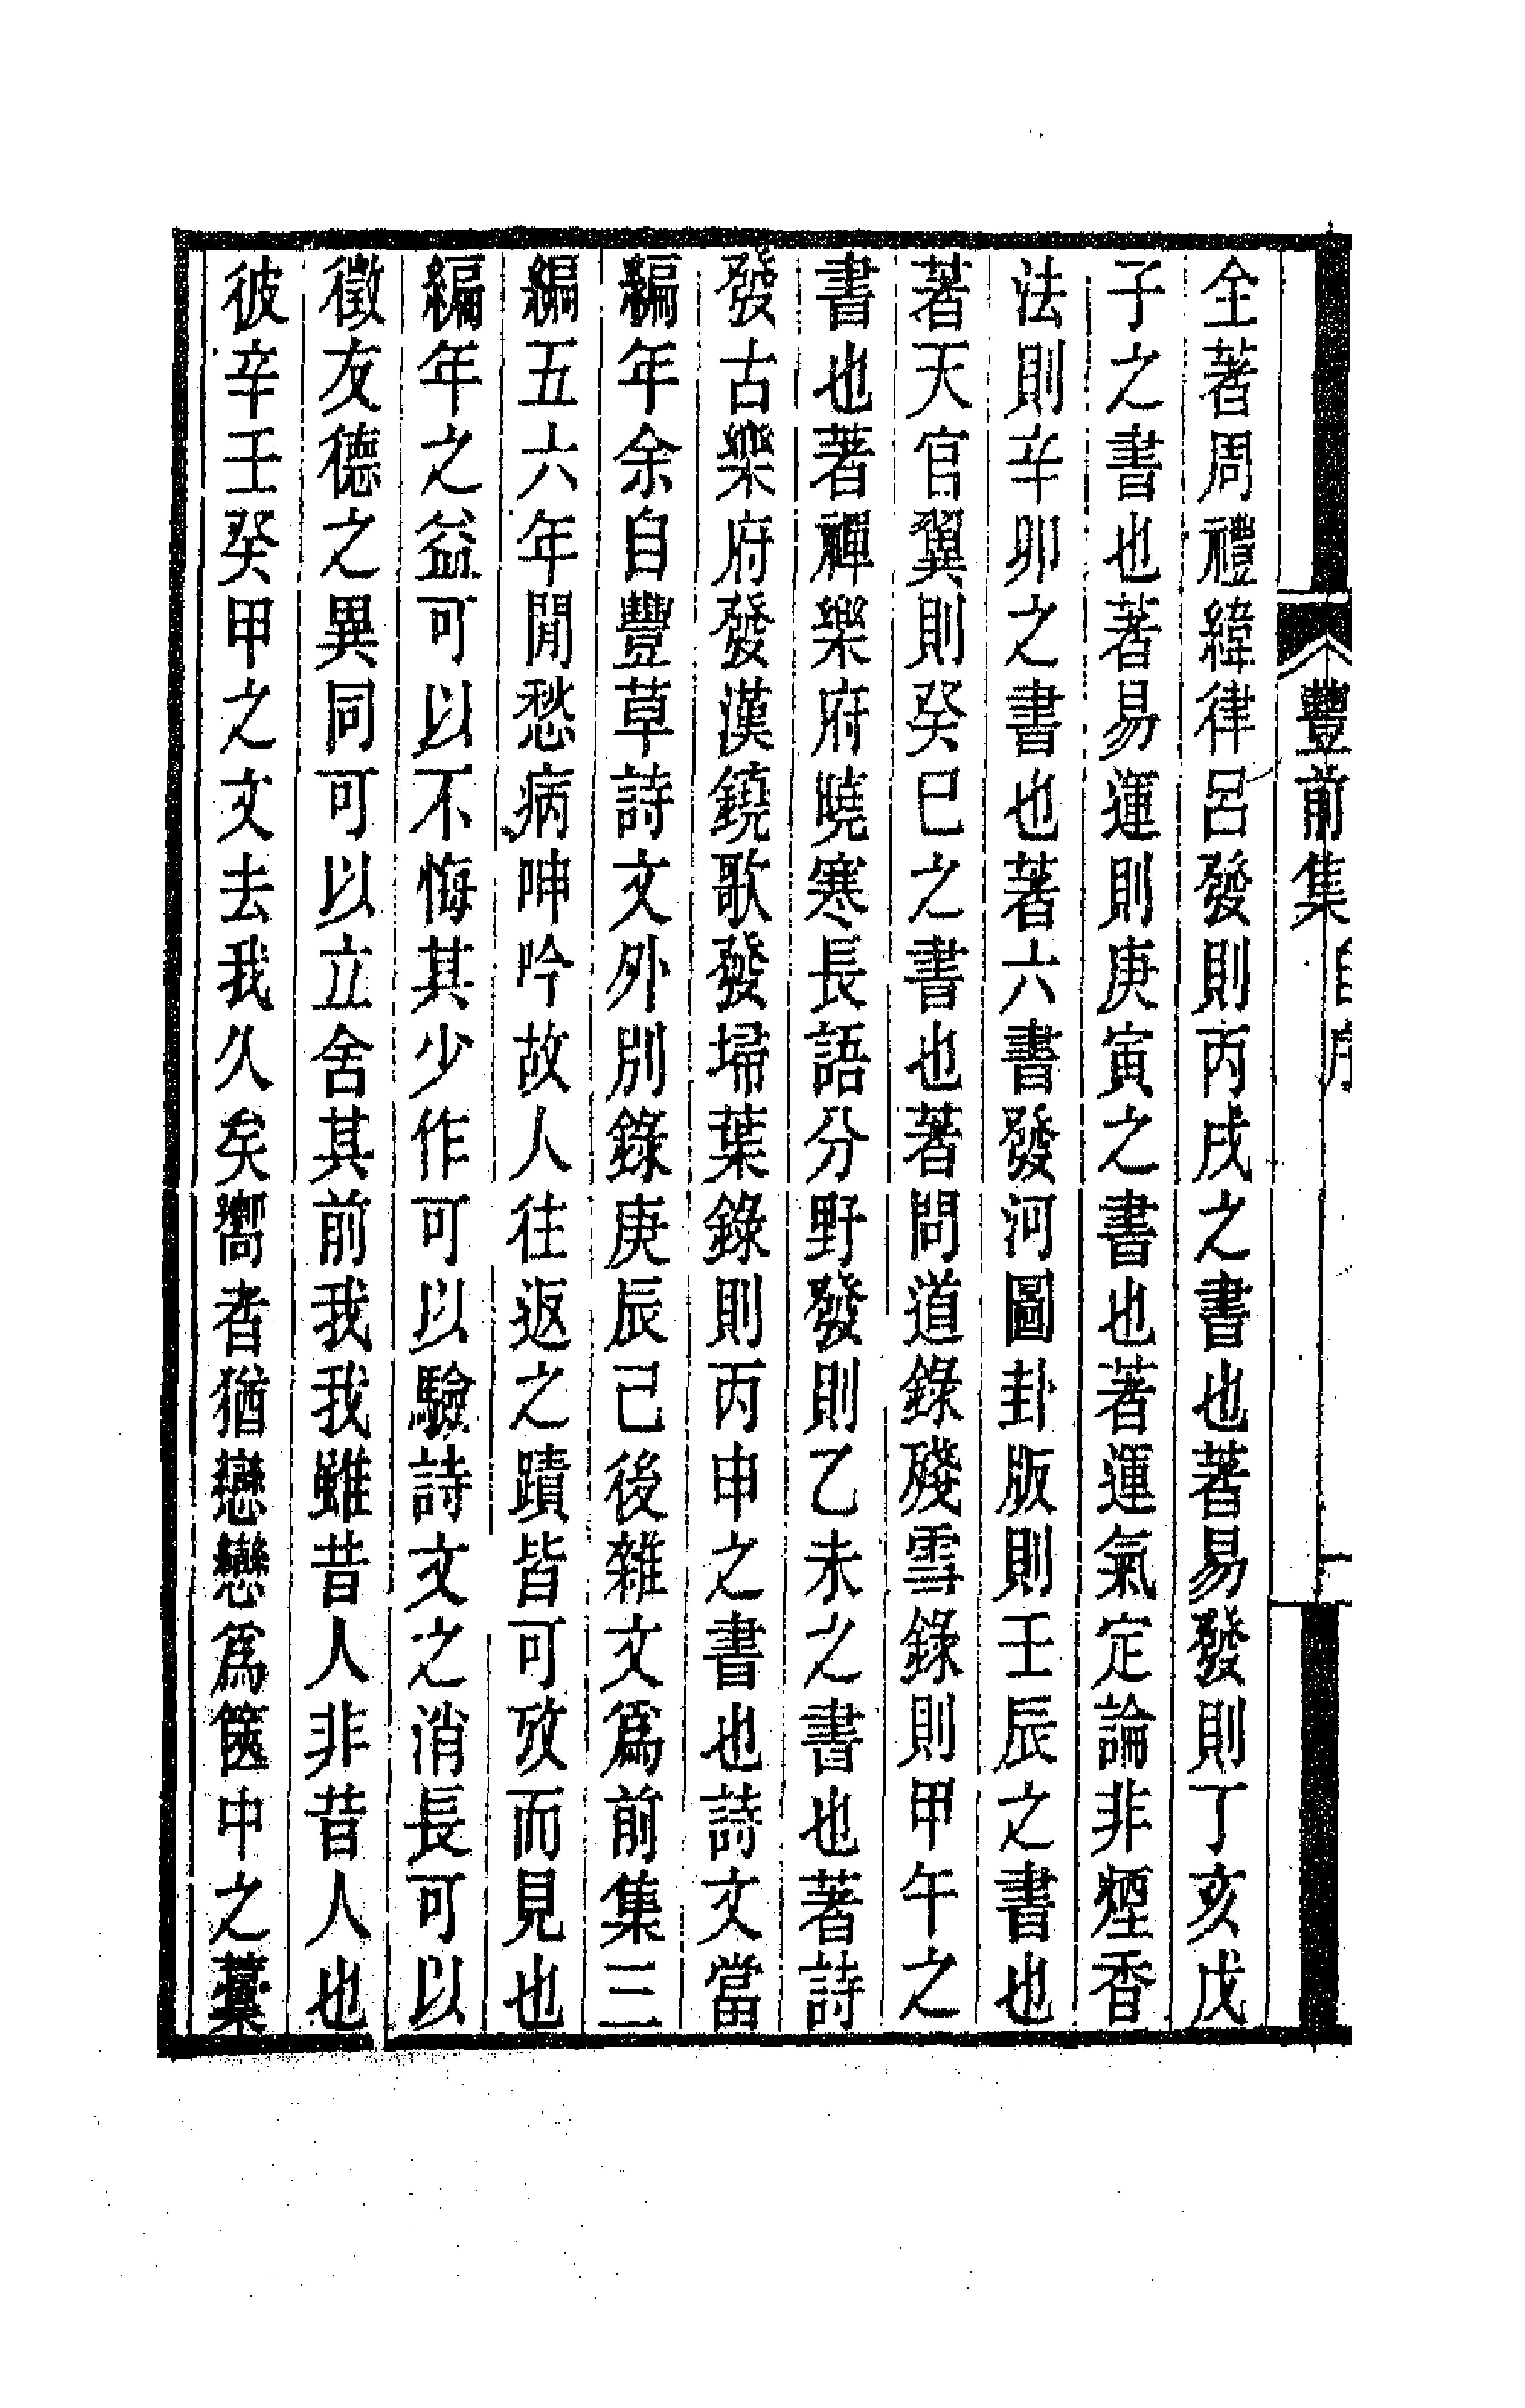 豐前集 自序 一
全著周禮緯律呂發則丙戌之書也著易發則丁亥戊
子之書也著易運則庚寅之書也著運氣定論非煙香
法則辛卯之書也著六書發河圖卦版則壬辰之書也
著天官翼則癸巳之書也著問道錄殘雪錄則甲午之
書也著禪樂府曉寒長語分野發則乙未之書也著詩
發古樂府發漢鐃歌發埽葉錄則丙申之書也詩文當
編年余自豐草詩文外別錄庚辰已後雜文爲前集三
編五六年閒愁病呻吟故人往返之蹟皆可攷而見也
編年之益可以不悔其少作可以驗詩文之消長可以
徵友德之異同可以立舍其前我我雖昔人非昔人也
彼辛壬癸甲之文去我久矣嚮者猶戀戀爲篋中之藁